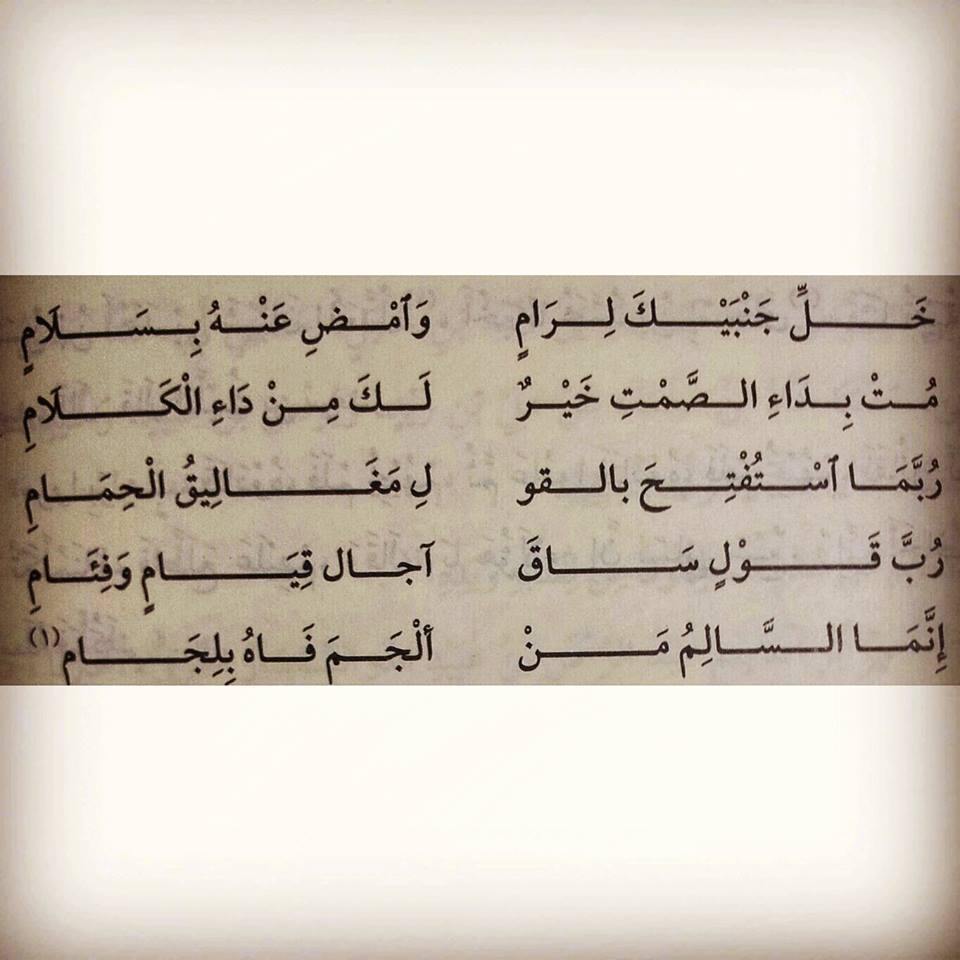 خَلِّ جَنْبَيْكَ لِرَامٍ وَٱمْضِ عَنْهُ بِسَلَامٍ
مُتْ بِدَاءِ الصَّمْتِ خَيْرٌ لَكَ مِنْ دَاءِ الْكَلَامِ
رُبَّمَا ٱسْتُفْتِحَ بالقو لِ مَغَالِيقُ الْحِمَامِ
رُبَّ قَوْلٍ سَاقَ آجال قِيَامٍ وَفِئَامِ
إِنَّمَا السَّالِمُ مَنْ ألْجَمَ فَاهُ بِلِجَامِ (١)